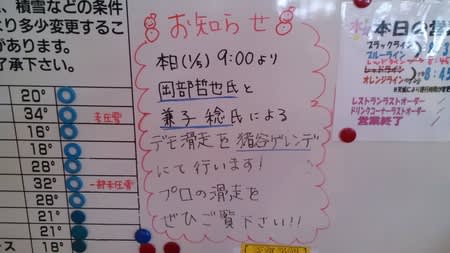 、積雪などの条件
より多少変更するこ
があります。
了承下さい。
20°
34° 未圧雪
16°
18°
28°
32° 一部未圧雪
28°
21°
21°
ス 18°
お知らせ
本日(1/5) 9:00より
岡部哲也氏と
兼子稔氏による
デモ滑走を猪谷ゲレンデ
にて行います!
プロの滑走を
ぜひご覧下さい!!
本日の営
ブラックライン
ブルーライン
レッドライン
オレンジライン 8:45
レストランラストオーダー
ドリンクコーナーラストオーダー
営業終了